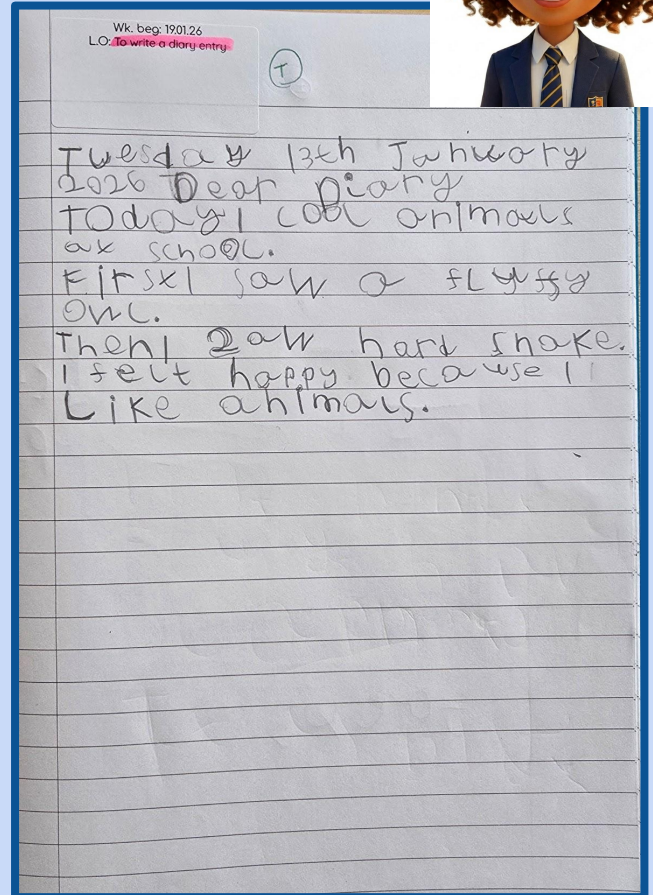 Wk. beg: 19.01.26
L.O: To write a diary entry
T
Tuesday 13th January
2026 Dear Diary
Today I cool animals
at school.
First I saw a fluffy
owl.
Then I saw hard snake.
I felt happy because I
Like animals.